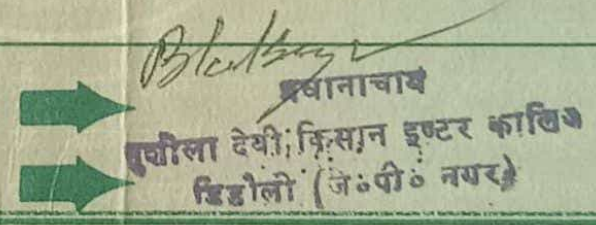 प्रधानाचार्य
सुशीला देवी किसान इण्टर कालिज
डिडौली (जे०पी० नगर)